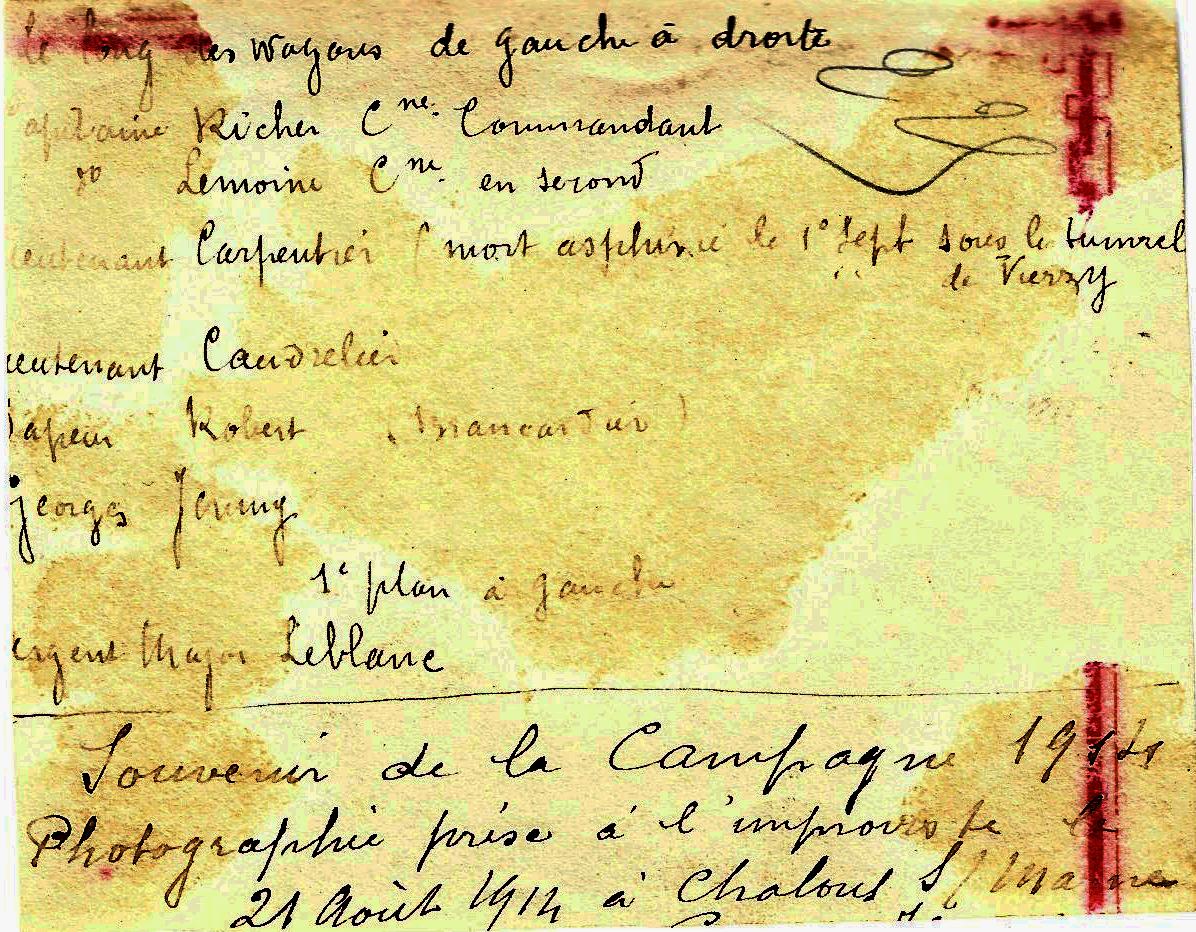 le long des Wagons de gauche à droite
Capitaine Richer Cne. Commandant
do Lemoine Cne. en second
lieutenant Carpentier (mort asphixié le 1e Sept sous le tunnel
de Vierzy
lieutenant Caudrelier
Sapeur Robert (Brancardier)
Georges
1e plan à gauche
Sergent Major Leblanc
Souvenir de la Campagne 1914
Photographie prise à l'improviste le
21 Août 1914 à Chalons S/Marne